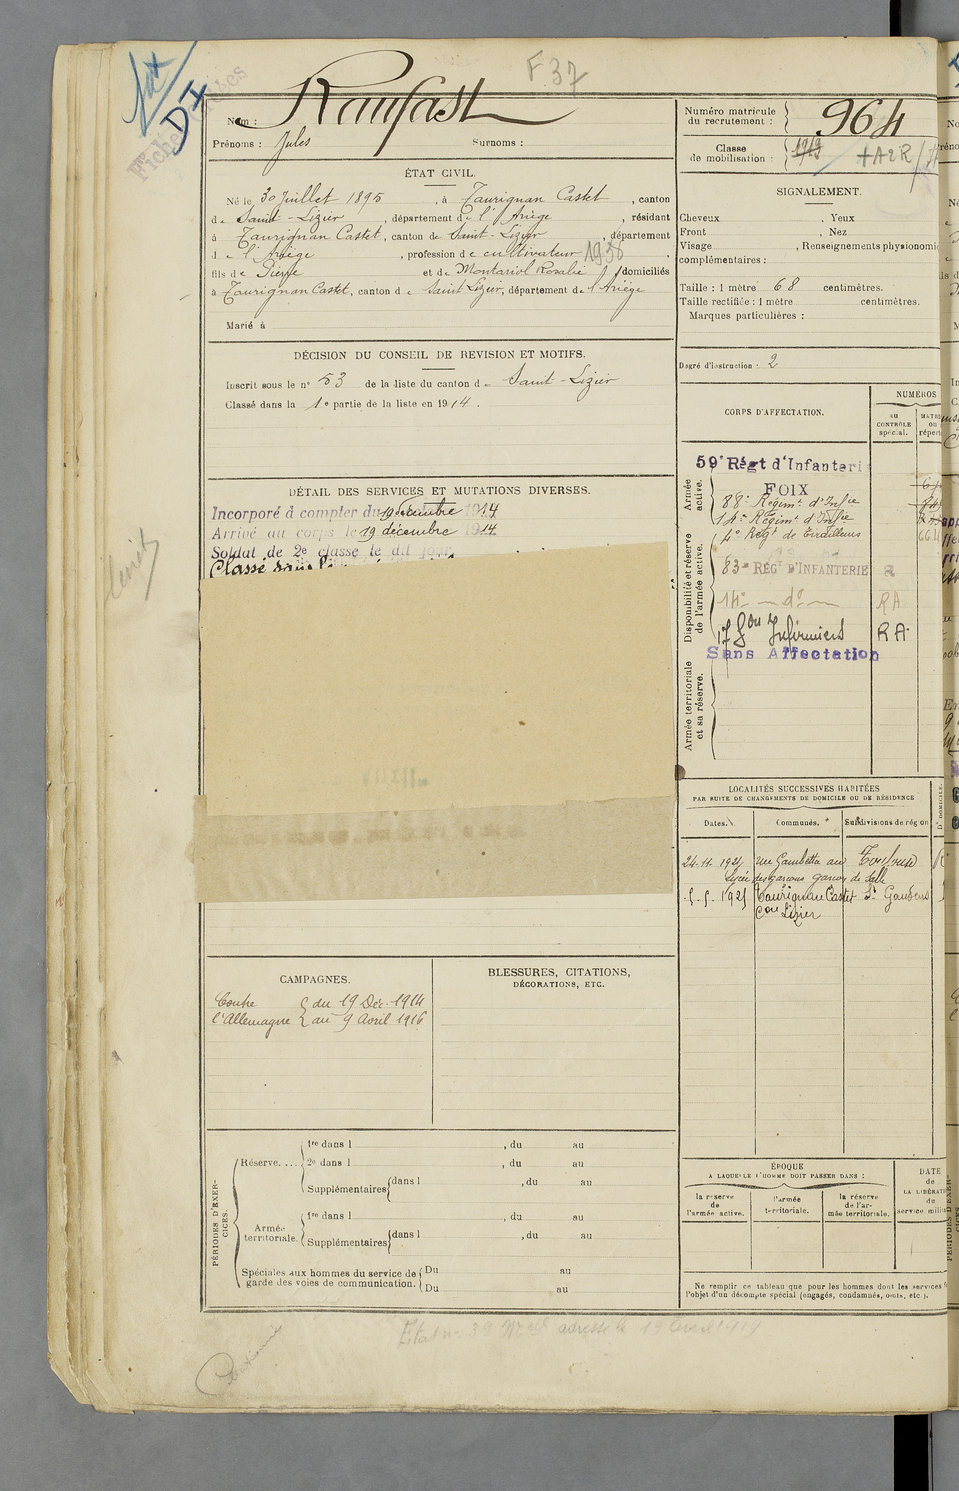 F. 37
DI
Nom : Raufast
Prénoms : Jules Surnoms :
Numéro matricule
du recrutement : 964
Classe
de mobilisation :
ÉTAT CIVIL.
Né le 30 Juillet 1895, à Taurignan Castet, canton
de Saint-Lizier, département de l'Ariège, résidant
à Taurignan Castet, canton de Saint-Lizier, département
d e l'Ariège, profession de cultivateur 1936
fils de Pierre et de Montariol Rosalie domiciliés
à Taurignan Castet, canton de Saint Lizier, département de l'Ariège
Marié à
SIGNALEMENT.
Cheveux . Yeux
Front , Nez
Visage , Renseignements physionomi
complémentaires :
Taille : 1 mètre 68 centimètres.
Taille rectifiée : 1 mètre centimètres.
Marques particulières :
Degré d'instruction : 2
DÉCISION DU CONSEIL DE REVISION ET MOTIFS.
Inscrit sous le n° 53 de la liste du canton de Saint-Lizier
Classé dans la 1e partie de la liste en 1914.
DÉTAIL DES SERVICES ET MUTATIONS DIVERSES.
Incorporé à compter du 19 décembre 1914
Arrivé au corps le 19 décembre 1914
Soldat de 2e classe le dit jour
Classé dans
CORPS D'AFFECTATION.
NUMÉROS
AU
CONTRÔLE
spécial.
Armée
active.
59e Régt d'Infanteri
FOIX
88e Régimt d'Infie
14e Régimt d'Infie
4e Régt de Tirailleurs
Disponibilité et réserve
de l'armée active.
83e RÉGt D'INFANTERIE R
14e — do — RA
17e Son Infirmiers RA
Sans Affectation
Armée territoriale
et sa réserve.
LOCALITÉS SUCCESSIVES HABITÉES
PAR SUITE DE CHANGEMENTS DE DOMICILE OU DE RÉSIDENCE
Dates. Communes. Subdivisions de région
24-11-1921 rue Gambetta au Toulouse
Lycée des garçons garçon de salle
Taurignan Castet St Gaudens
Con Lizier
CAMPAGNES.
Contre du 19 Déc. 1914
l'Allemagne au 9 Avril 1916
BLESSURES, CITATIONS,
DÉCORATIONS, ETC.
PÉRIODES D'EXER-
CICES.
Réserve....
1re dans l , du au
2e dans l , du au
Supplémentaires dans l , du au
Armée
territoriale.
1re dans l , du au
Supplémentaires dans l , du au
Spéciales aux hommes du service de
garde des voies de communication.
Du au
Du au
ÉPOQUE
A LAQUELLE L'HOMME DOIT PASSER DANS :
la réserve
de
l'armée active.
l'armée
territoriale.
la réserve
de l'ar-
mée territoriale.
DATE
de
LA LIBÉRAT
du
service milit
Ne remplir ce tableau que pour les hommes dont les services
l'objet d'un décompte spécial (engagés, condamnés, omis, etc.).